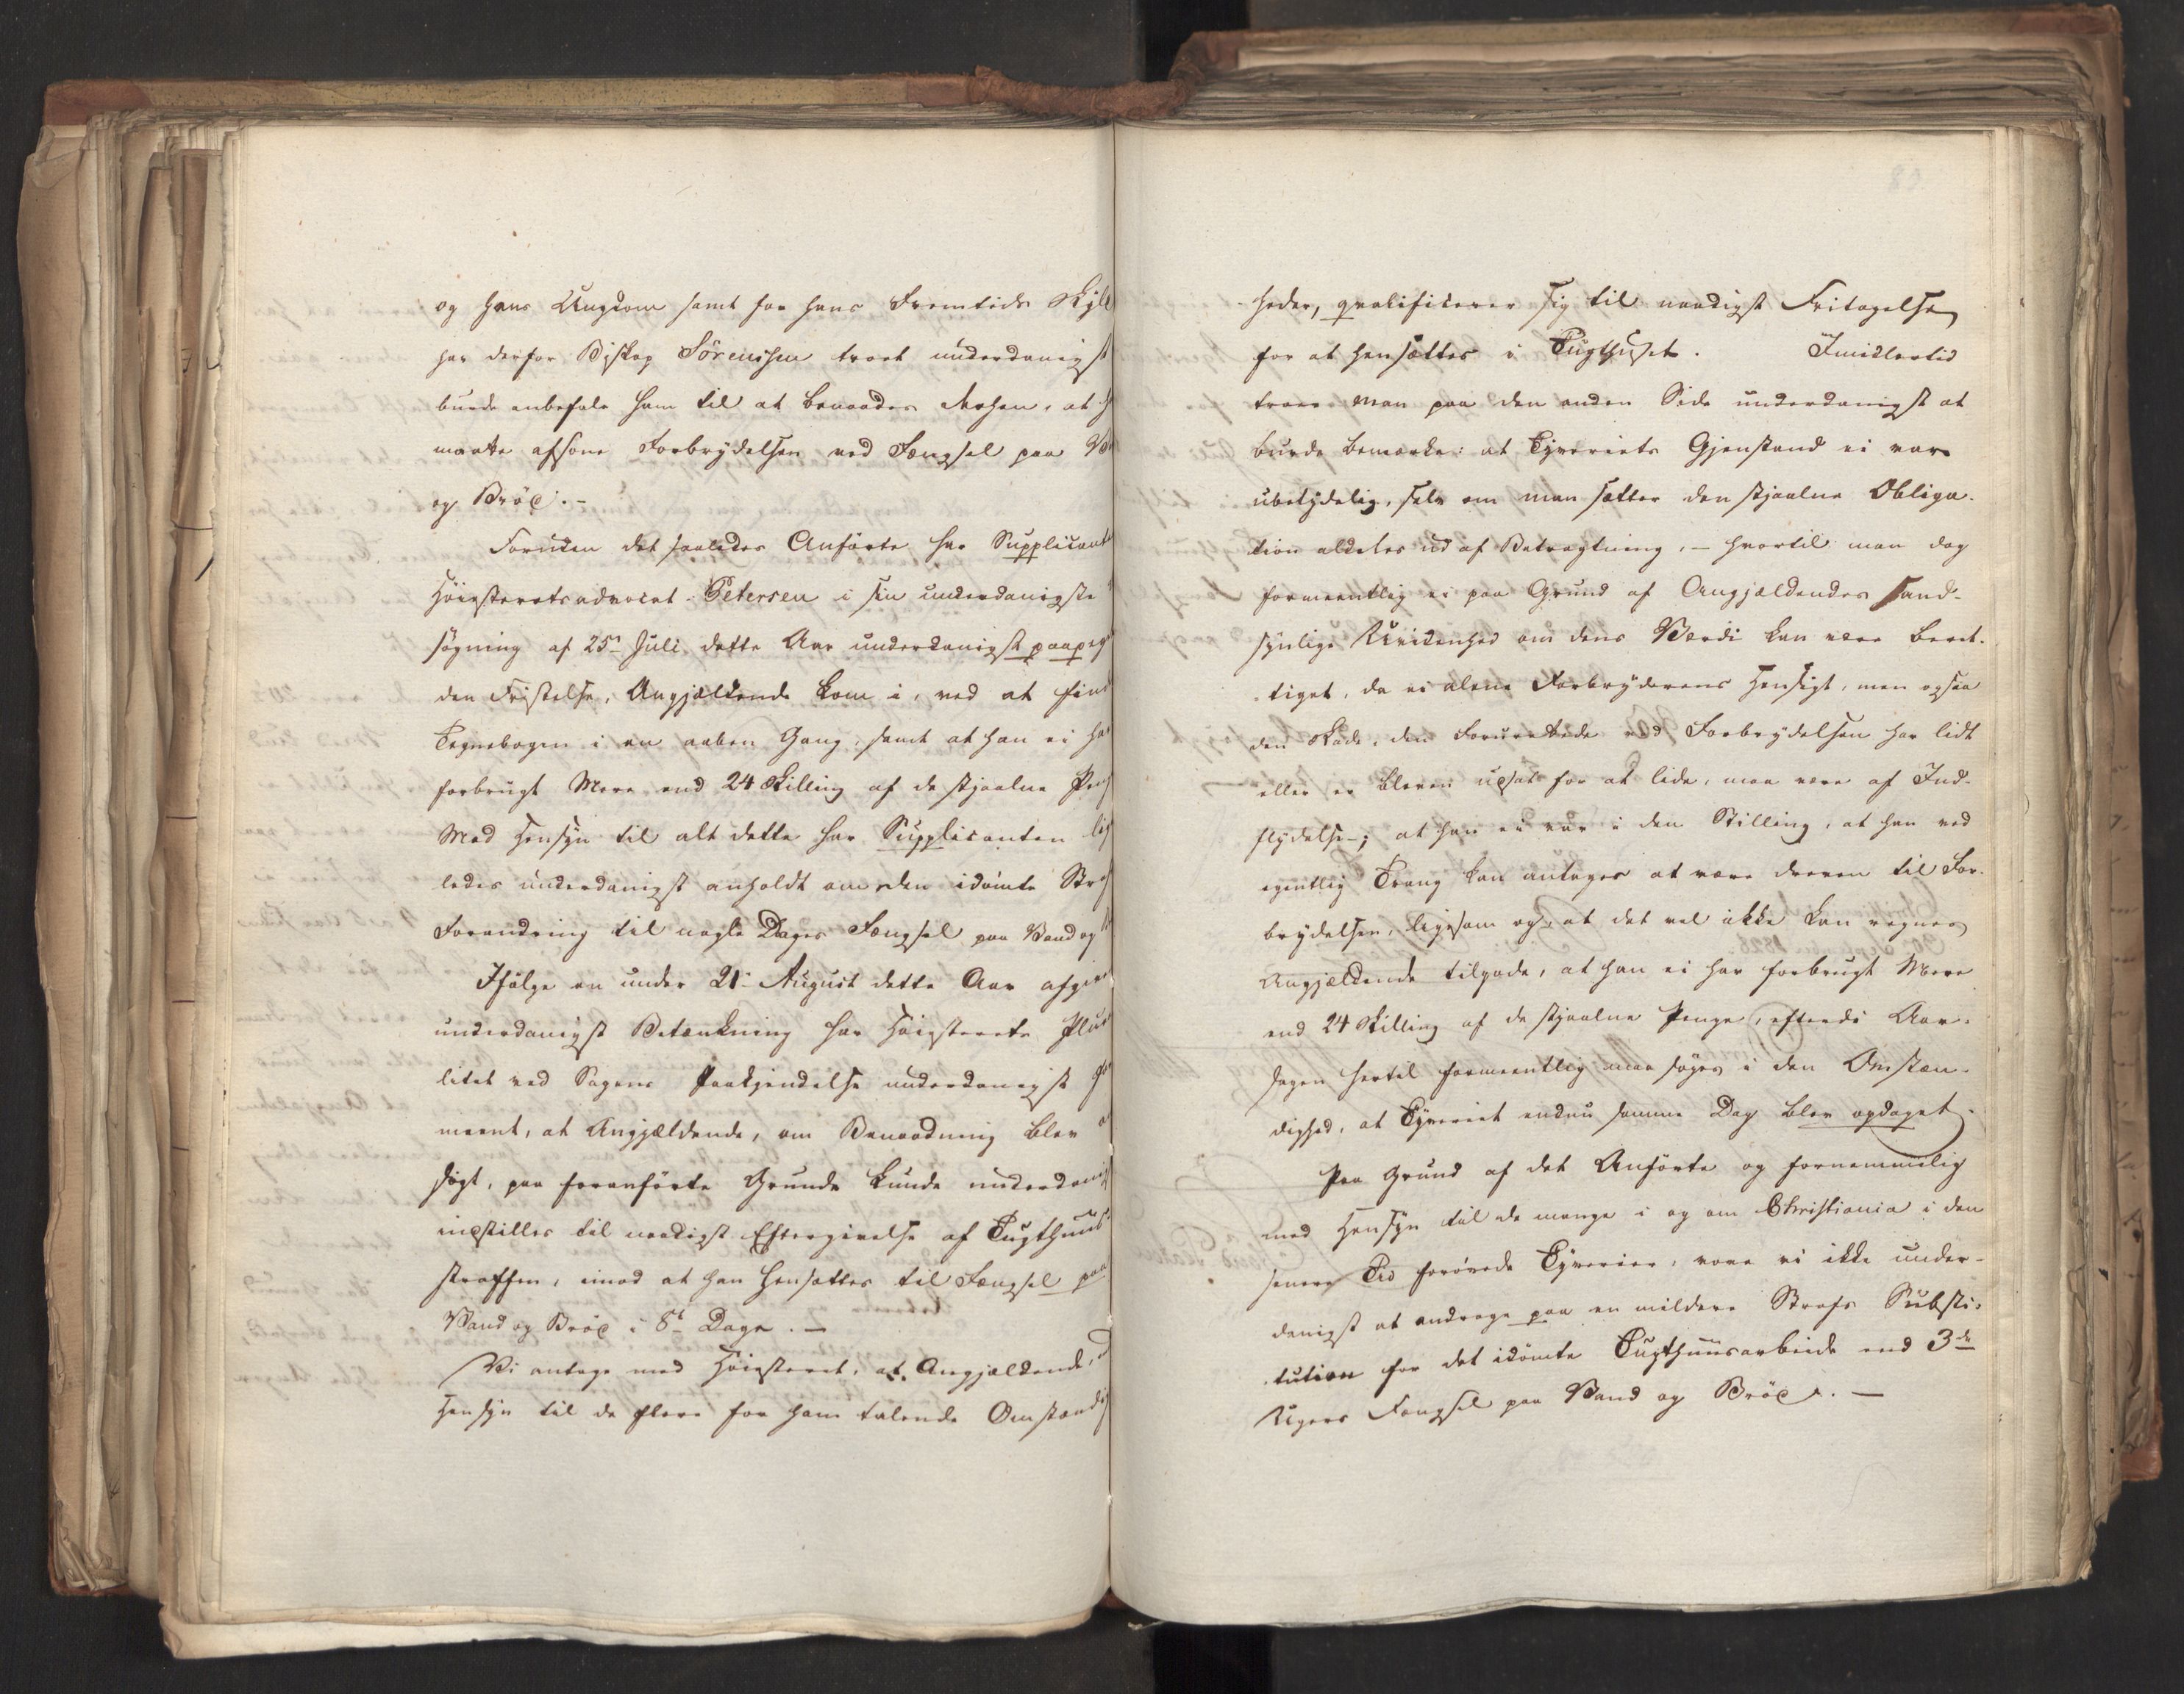 og hans Ungdom samt for hans Fremtids Skyld
har derfor Biskop Sörenssen troet underdanigst
burde anbefale ham til at benaades derhen, at h
maatte afsone Forbrydelsen ved Fængsel paa Va
og Bröd. -
Foruden det saaledes Anförte har Supplicant
Höiesteretsadvocat Petersen i sin underdanigste
søgning af 25n Juli dette Aar underdanigst paapeg
den Fristelse, Angjældende kom i, ved at find
Tegnebogen i en aaben Gang, samt at han ei ha
forbrugt Mere end 24 Skilling af de stjaalne Peng
Med Hensyn til alt dette har Supplicanten lig
ledes underdanigst anholdt om den idömte Straf
Forandring til nogle Dages Fængsel paa Vand og
Ifølge en under 21. August dette Aar afgiven
underdanigst Betænkning har Höiesterets Plura
litet ved Sagens Paakjendelse underdanigst for
meent, at Angjældende, om Benaadning blev
søgt, paa foranførte Grunde kunde underdanig
indstilles til naadigst Eftergivelse af Tugthuus
straffen, imod at han hensættes til Fængsel paa
Vand og Bröd i 8t Dage. -
Vi antage med Höiesteret, at Angjældende,
Hensyn til de flere for ham talende Omstændig
83
heder, qvalificerer sig til naadigst Fritagelse
for at hensættes i Tugthuset. Imidlertid
troer man paa den anden Side underdanigst at
burde bemærke: at Tyveriets Gjenstand ei var
ubetydelig, selv om man sætter den stjaalne Obliga-
tion aldeles ud af Betragtning, - hvortil man dog
formeentlig ei paa Grund af Angjældendes sand-
synlige Uvidenhed om dens Værdi kan være beret-
tiget, da ei alene Forbryderens Hensigt, men ogsaa
den Skade, den Forurettede ved Forbrydelsen har lidt
eller er bleven udsat for at lide, maa være af Ind-
flydelse-; at han ei var i den Stilling, at han ved
egentlig Trang kan antages at være dreven til For-
brydelsen, ligesom og, at det vel ikke kan regnes
Angjældende tilgode, at han ei har forbrugt Mere
end 24 Skilling af de stjaalne Penge, efterdi Aar-
sagen hertil formeentlig maa søges i den Omstæn-
dighed, at Tyveriet endnu samme Dag blev opdaget.
Paa Grund af det Anförte og fornemmelig
med Hensyn til de mange i og om Christiania i den
senere Tid forøvede Tyverier, vove vi ikke under-
danigst at andrage paa en mildere Strafs Substi-
tution for det idömte Tugthuusarbeide end 3de
Ugers Fængsel paa Vand og Bröd. -